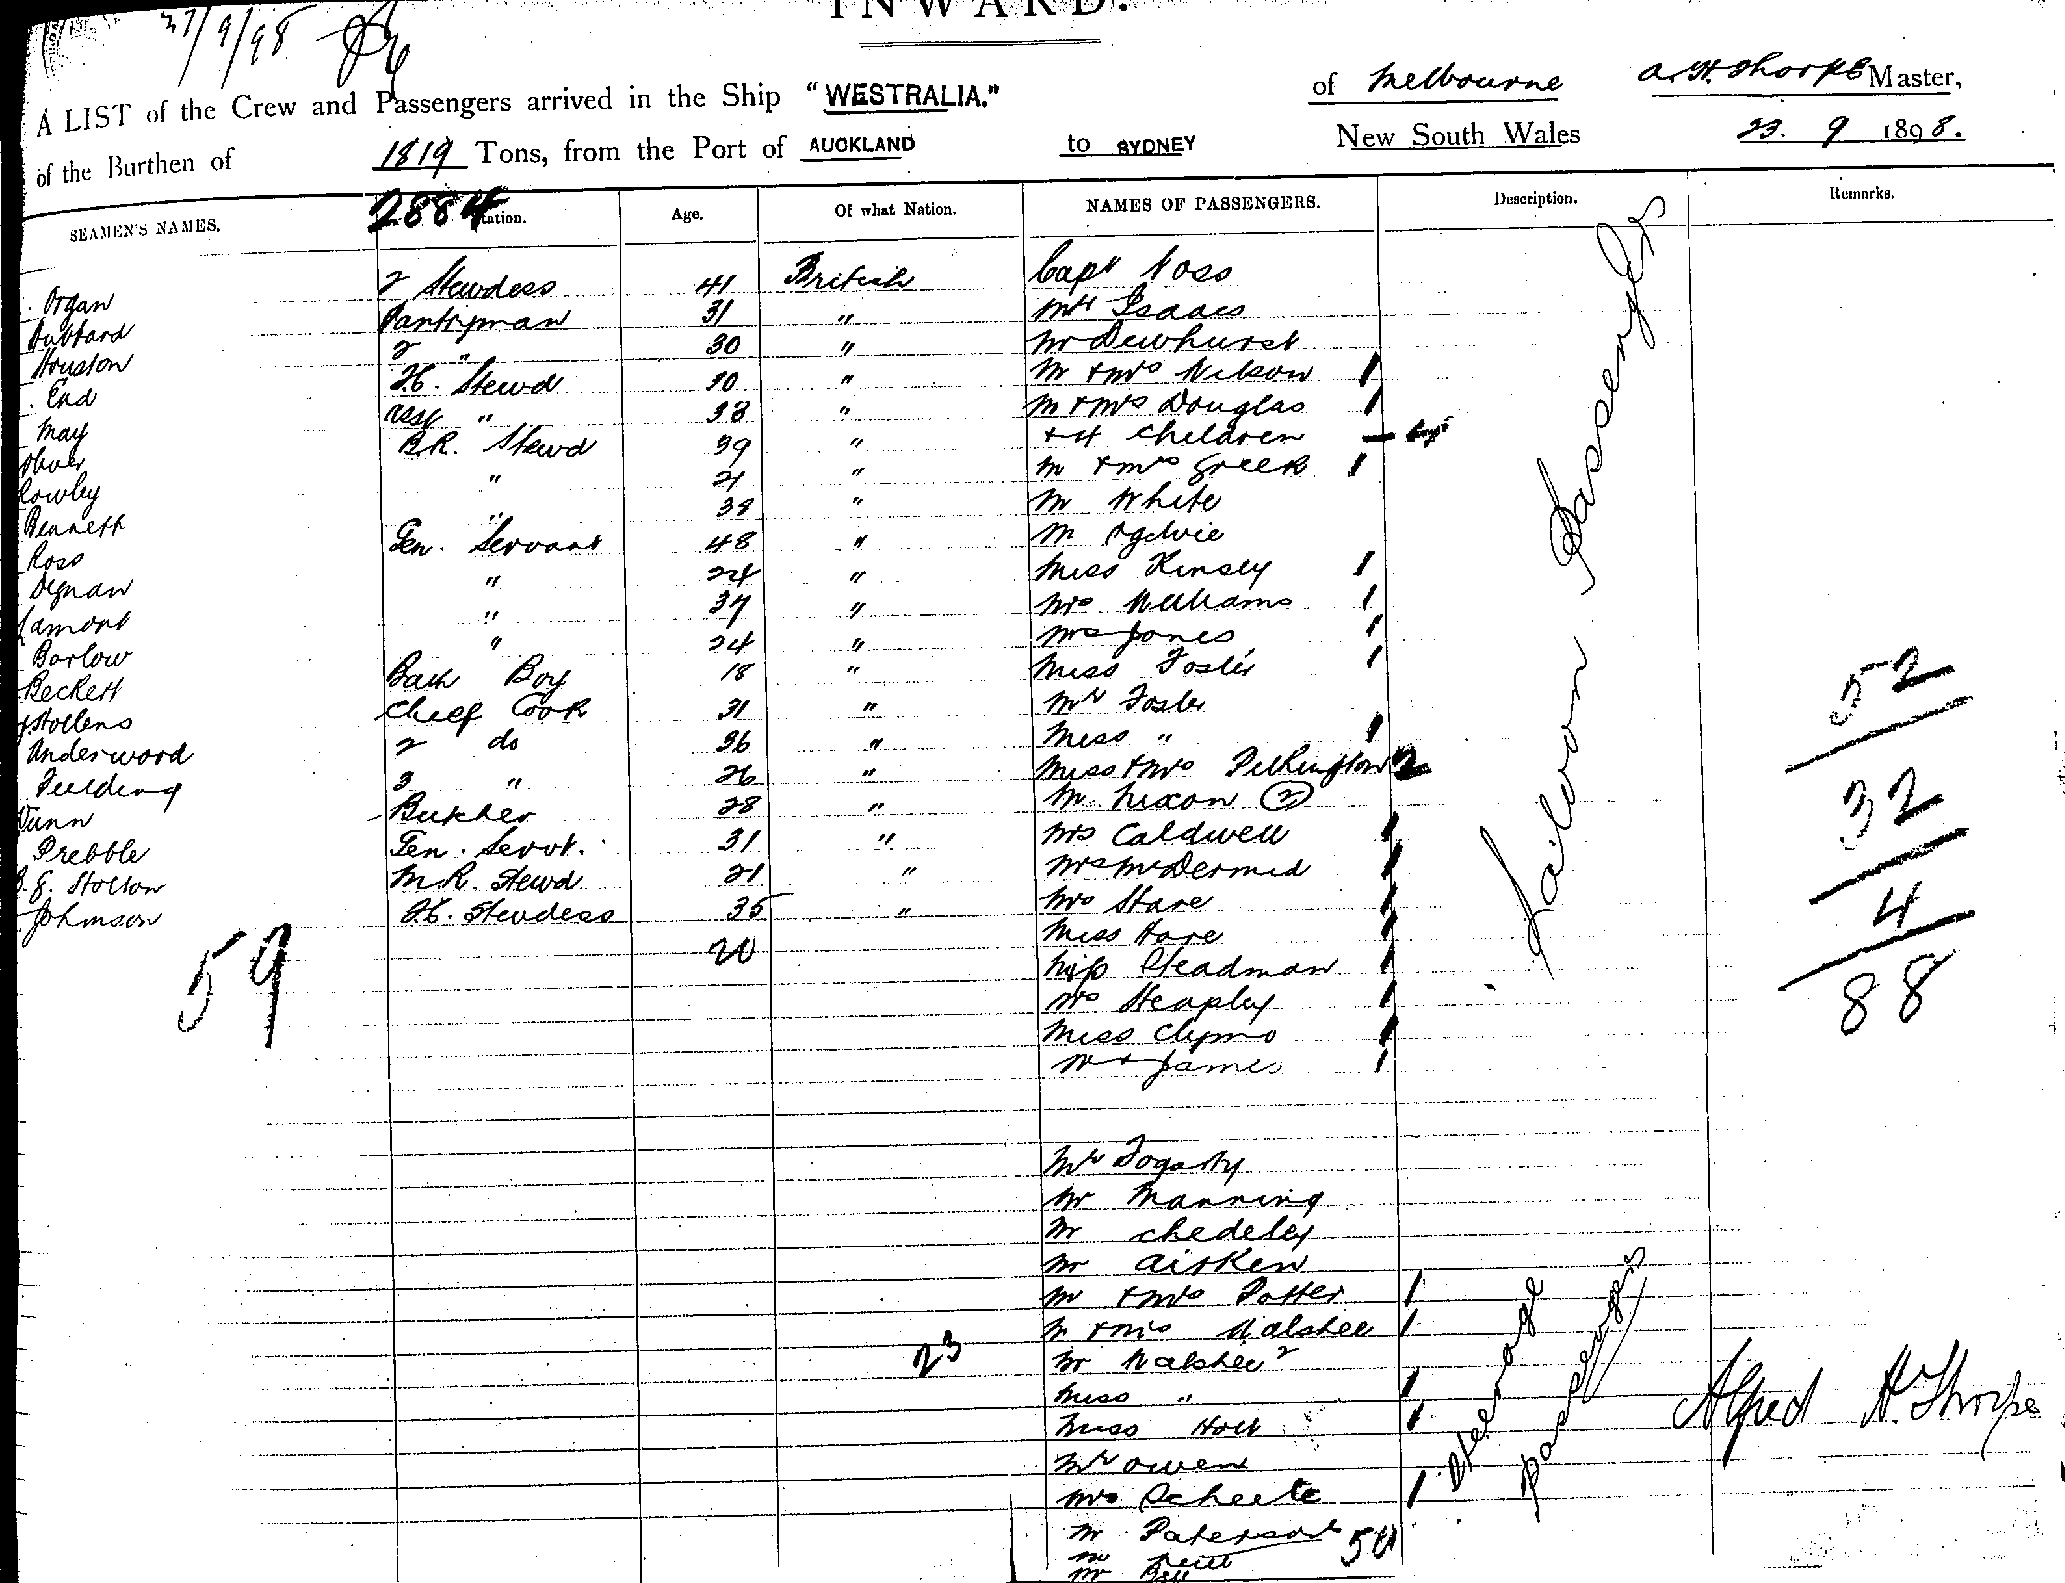 INWARD.
27/9/98
A LIST of the Crew and Passengers arrived in the Ship "WESTRALIA." of Melbourne A. H. Thorpe Master,
of the Burthen of 1819 Tons, from the Port of AUCKLAND to SYDNEY New South Wales 23. 9 1898.
2884
SEAMEN'S NAMES. Station. Age. Of what Nation. NAMES OF PASSENGERS. Description. Remarks.
Organ 2 Stewdess 41 British Capt Voss
Hubbard Pantryman 31 " Mr Isaacs
Houston 2 " 30 " Mr Dewhurst
End H. Stewd " M & Mrs Nelson 1
May asst " 33 " M & Mrs Douglas 1
Oliver B.R. Stewd 39 " + 4 Children
Rowley " 21 " M & Mrs Green 1
Bennett " 38 " M White
Ross Gen. Servant 48 " M Ogilvie
Degnan " 24 " Miss Kinsey 1
Lamont " 37 " Mrs Williams 1
Barlow " 24 " Mrs Jones 1
Beckett Bath Boy 18 " Miss Foster 1
Stollens Chief Cook 31 " Mr Foster
Underwood 2 do 36 " Miss " 1
Feilding 3 " 26 " Miss & Mrs Pilkington 2
Dunn Butcher 28 " M Nixon (2)
Prebble Gen. Servt. 31 " Mrs Caldwell 1
Stolton M.R. Stewd 21 " Mrs McDermid 1
Johnson H. Stewdess 35 " Mrs Hare 1
20
59
Miss Hare 1
Miss Steadman 1
Mrs Heapley 1
Miss Clymo 1
James 1
Saloon Passengers
52
32
4
88
Mr Fogarty
Mr Manning
Mr Chedeley
Mr Aitken
M & Mrs Potter 1
M & Mrs Walshee 1
23
Mr Walshee 2
Miss " 1
Miss Holt 1
Mr Owen
Mrs Scheele 1
Mr Paterson
Mr Neill
Mr Bell
50
Steerage passengers
Alfred H. Thorpe